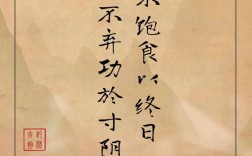 不饱食以终日
不弃功於寸阴